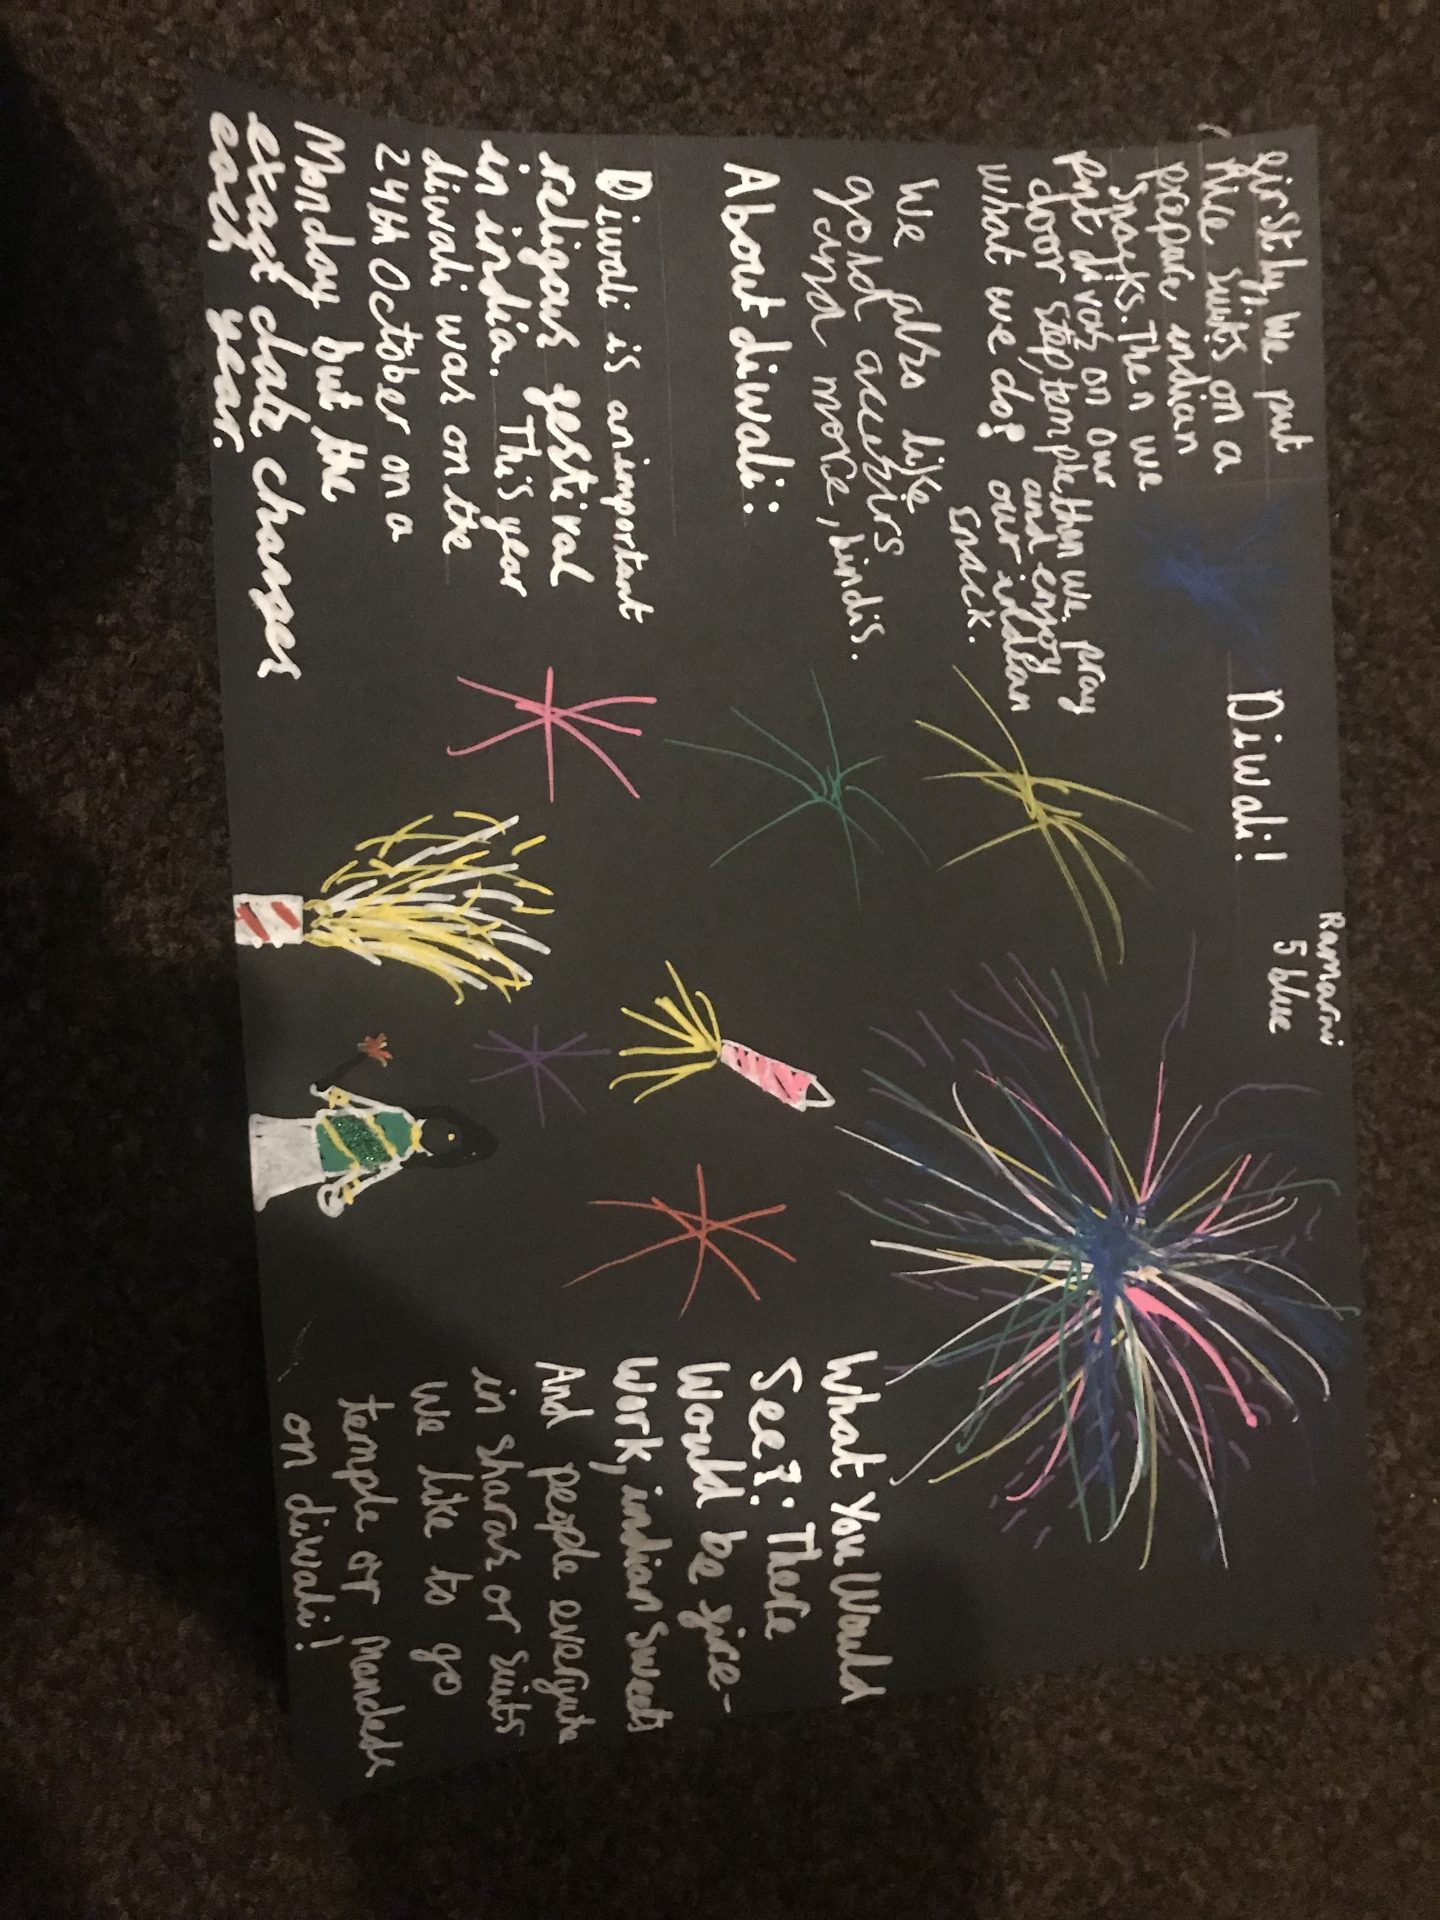 Ramarni
5 blue
Diwali!
firstly, we put
Nice suits on a
prepare indian
Snacks. Then we
put divas on our
door step, temple, then we pray
what we do? and enjoy
our indian
snack.
We also like
gold
and more, bindis.
About diwali:
Diwali is an important
religous festival
in india. This year
diwali was on the
24th October on a
Monday but the
exact date changes
each year.
What You Would
See?: There
Would be fire-
Work, indian Sweets
And people
in sharas or suits
We like to go
temple or Mandede
on diwali!